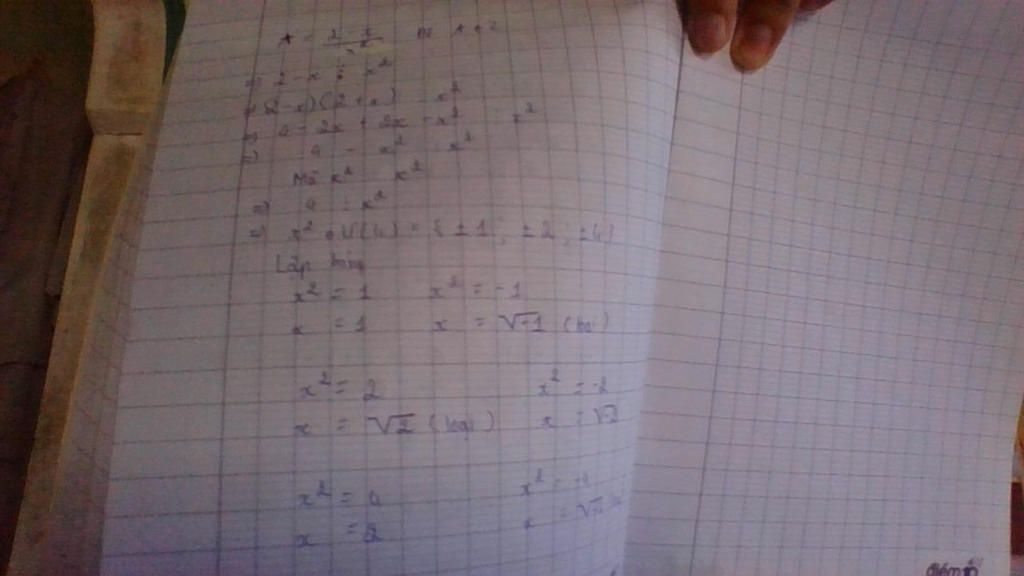 A = 2 - x / x² A ∈ Z
=> 2 - x ⋮ x²
=> (2-x)(2+x) x²
=> 4 - 2x + 2x - x² ⋮ x²
=> 4 - x² x²
Mà x² x²
=> 4 ⋮ x²
=> x² ∈ Ư(4) = {±1; ±2; ±4}
Lập bảng
x² = 1 x² = -1
x = 1 x = √-1 (loại)
x² = 2 x² = -2
x = √2 (loại) x = √-2
x² = 4 x² = -4
x = 2 x =
điểm